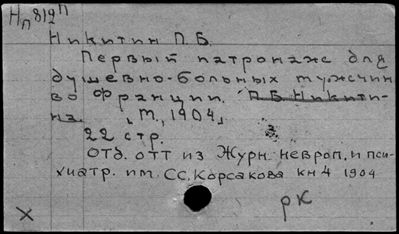 Нп819п
Никитин П.Б.
Первый патронаж для
душевно-больных мужчин
во Франции. П.Б. Никити-
на. М., 1904
22 стр.
Отд. отт из Журн. невроп. и пси-
хиатр. им. С.С. Корсакова кн 4 1904
рк